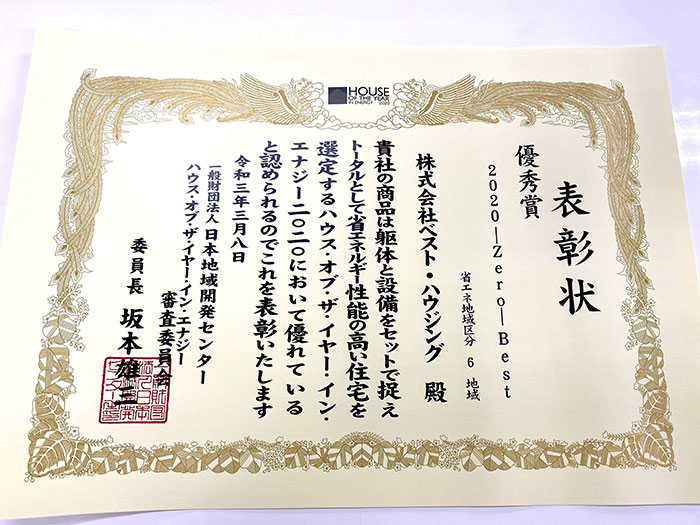 HOUSE
OF THE YEAR
IN ENERGY 2020
表彰状
優秀賞
2020―Zero―Best
省エネ地域区分 6 地域
株式会社ベスト・ハウジング 殿
貴社の商品は躯体と設備をセットで捉え
トータルとして省エネルギー性能の高い住宅を
選定するハウス・オブ・ザ・イヤー・イン・
エナジー二〇二〇において優れている
と認められるのでこれを表彰いたします
令和三年三月八日
一般財団法人 日本地域開発センター
ハウス・オブ・ザ・イヤー・イン・エナジー
審査委員会
委員長 坂本雄三